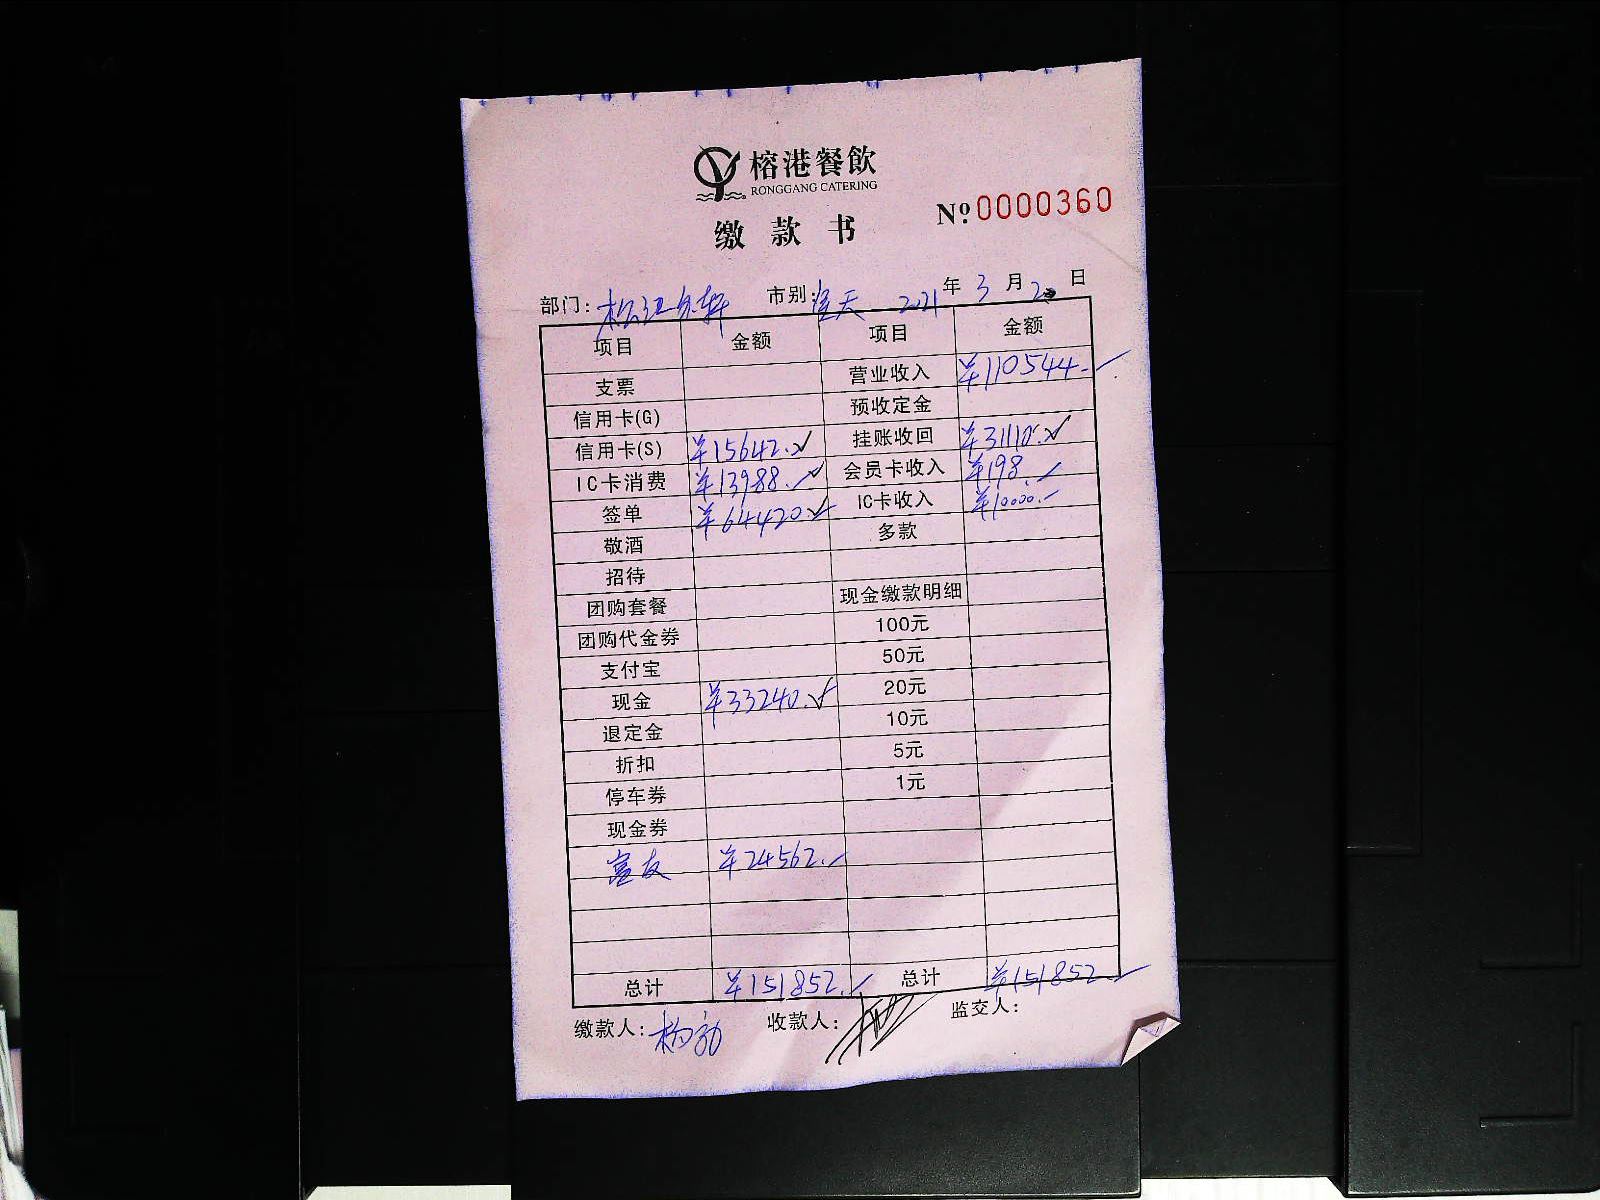 榕港餐飲
RONGGANG CATERING
缴款书 №:0000360
部门: 松江 轩 市别: 全天 2021年3月2日
项目 金额 项目 金额
支票 营业收入 ¥110544.
信用卡(G) 预收定金
信用卡(S) ¥15642. 挂账收回 ¥31110.
IC卡消费 ¥13988. 会员卡收入 ¥198.
签单 ¥64420. IC卡收入 ¥10000.
敬酒 多款
招待
团购套餐 现金缴款明细
团购代金券 100元
支付宝 50元
现金 ¥33240. 20元
退定金 10元
折扣 5元
停车券 1元
现金券
富友 ¥24562.
总计 ¥151852. 总计 ¥151852.
缴款人: 杨 收款人: 监交人: